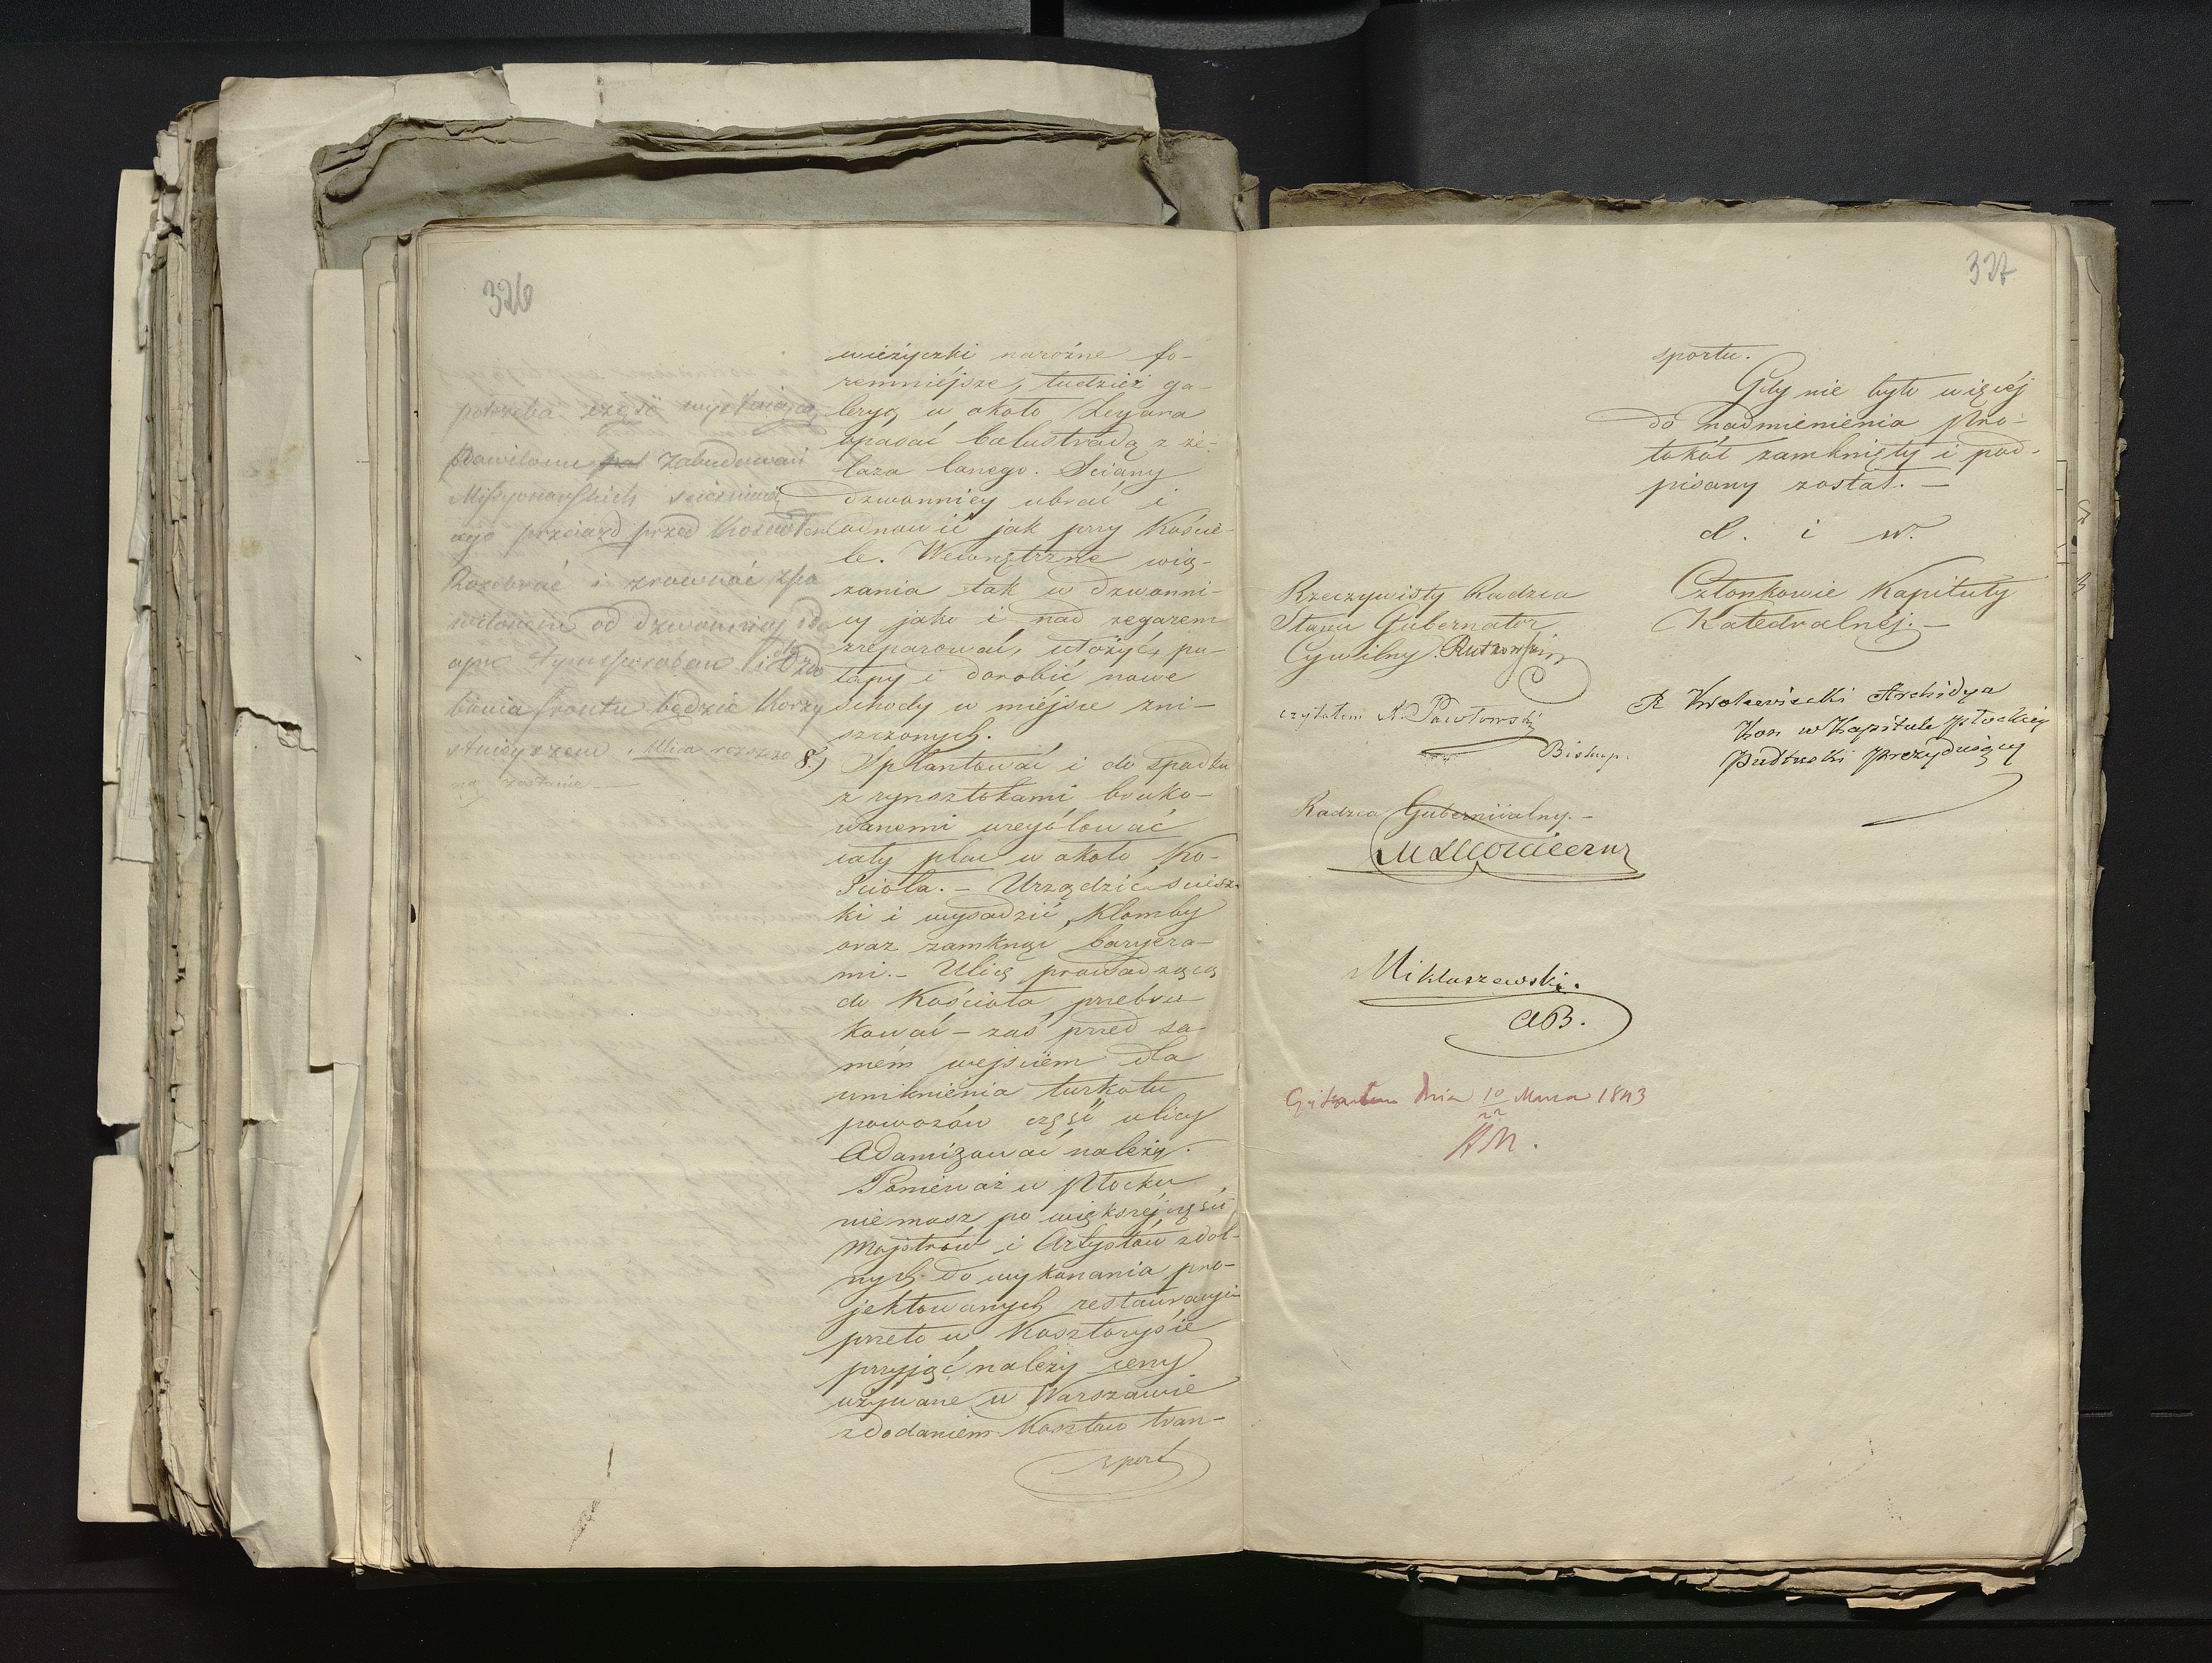 326
potrzeba część wystającą
Pawilonu zabudowań
Missyonarskich
przeiazd przed Kosciołem
Rozebrać i zrownać z pa
wilonem od dzwonnicy
tym sposobem i
frontu będzie korzy
Ulica
zostanie
wieżyczki narożne fo-
remniéjsze, tudzież ga-
leryą w około Zegara
opasać balustradą z że-
laza lanego. Sciany
dzwonnicy ubrać i
odnowić jak przy Koście-
le. Wewnętrzne wią-
zania tak w dzwonni-
cy jako i nad zegarem
zreparować, ułożyć pu-
łapy i dorobić nowe
schody w miéjsce zni-
szczonych.
8.) Splantować i do spadku
z rynsztokami bruko-
wanemi uregulować
cały plac w około Ko-
ścioła. – Urządzić ściesz-
ki i wysadzić Klomby
oraz zamknąć baryera-
mi. – Ulicę prowadzącą
do Kościoła przebru
kować – zaś przed sa-
mém wejściem dla
uniknienia turkotu
powozów część ulicy
Adamizować należy.
Ponieważ w Płocku
niemasz po większéj części
Majstrów i Artystów zdol-
nych do wykonania pro-
jektowanych restauracyi
przeto w Kosztorysie
przyjąć należy ceny
używane w Warszawie
z dodaniem Kosztów tran-
sport
327
sportu.
Gdy nie było więcéj
do nadmienienia Pro-
tokół zamknięty i pod-
pisany został. –
d. i w.
Rzeczywisty Radzca
Stanu Gubernator
Cywilny. Rutkowski
czytałem A. Pawłowski
Biskup.
Radzca Gubernialny. –
Członkowie Kapituły
Katedralnéj. –
Archidya
Kon w Kapitule Płockiéj
Pułtuski Prezydujący
Mikłaszewski.
AB.
Czytałem dnia 10/22 Marca 1843
AM.